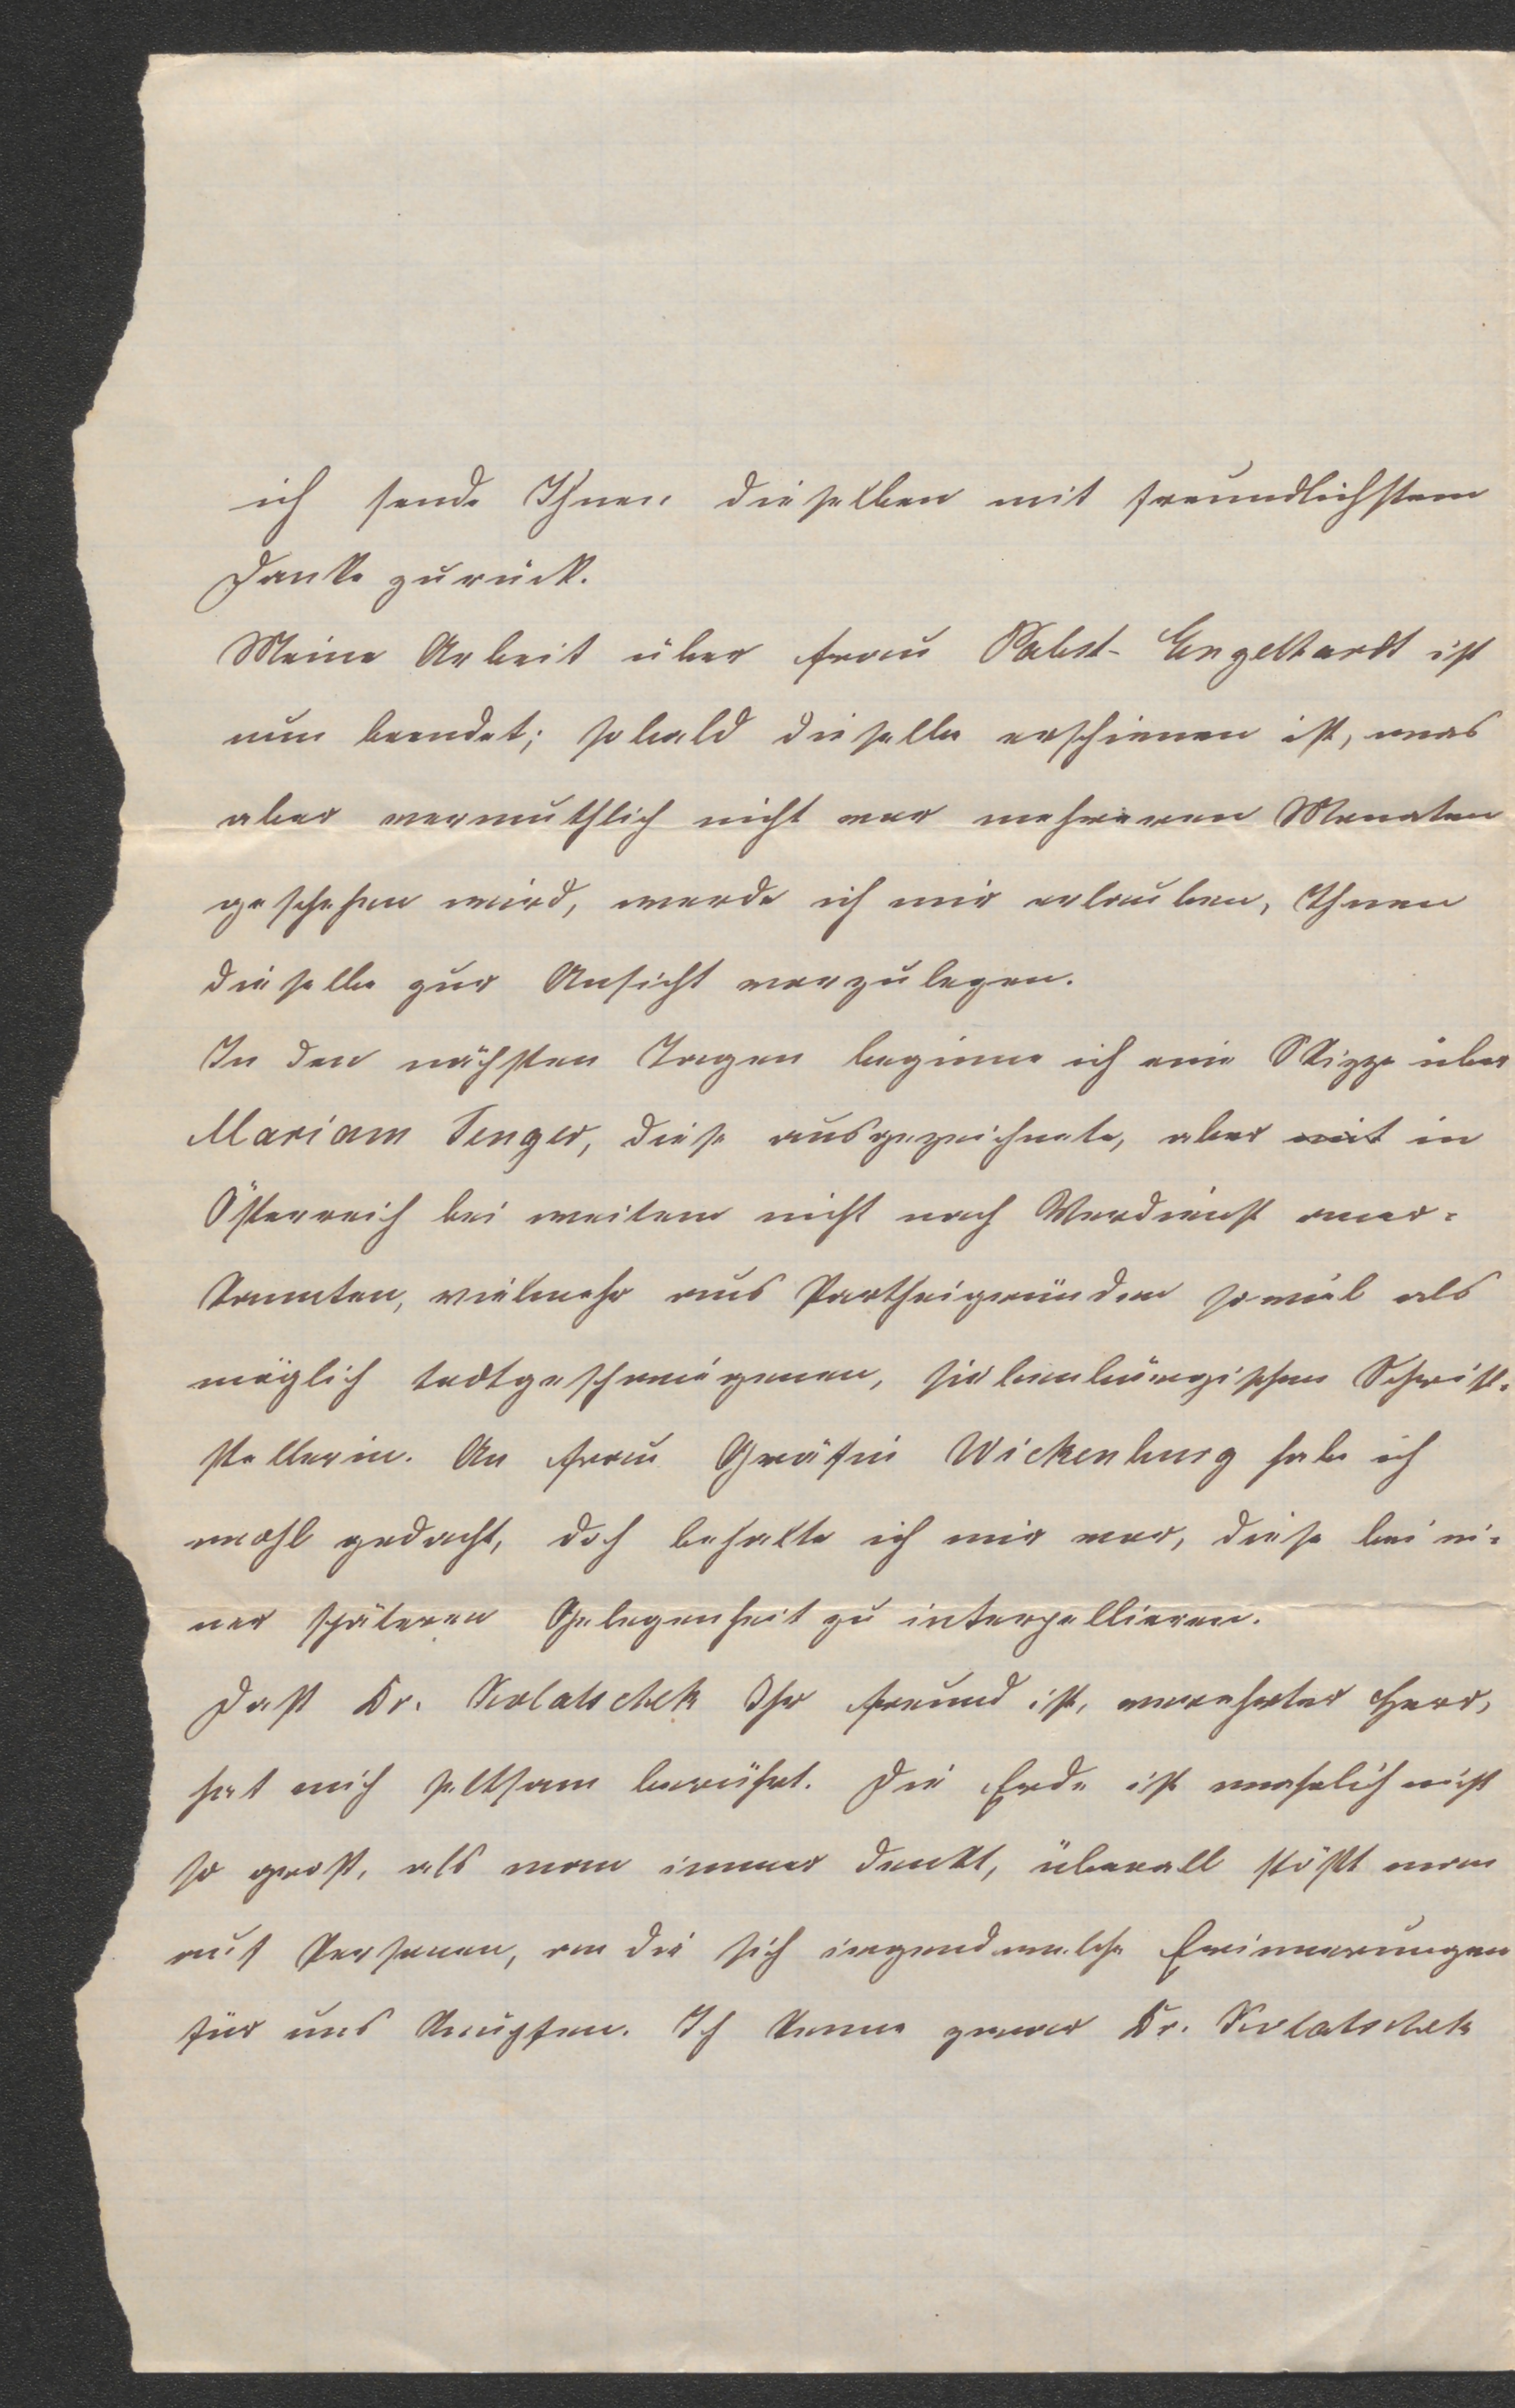 ich sende Ihnen dieselben mit freundlichstem
Danke zurück.
Meine Arbeit über Frau Pabst-Engelhardt ist
nun beendet; sobald dieselbe erschienen ist, was
aber vermuthlich nicht vor mehreren Monaten
geschehen wird, werde ich mir erlauben, Ihnen
dieselbe zur Ansicht vorzulegen.
In den nächsten Tagen beginne ich eine Skizze über
Mariam Tenger, diese ausgezeichnete, aber mit in
Österreich bei weitem nicht nach Verdienst aner-
kannten, vielmehr aus Partheigründen soviel als
möglich todtgeschwiegenen, siebenbürgischen Schrift-
stellerin. An Frau Gräfin Wickenburg habe ich
wohl gedacht, doch behalte ich mir vor, diese bei ei-
ner späteren Gelegenheit zu interpellieren.
Dass Dr. Kolatschek Ihr Freund ist, verehrter Herr,
hat mich seltsam berührt. Die Erde ist wahrlich nicht
so gross, als man immer denkt, überall stösst man
auf Personen, an die sich irgendwelche Erinnerungen
für uns knüpfen. Ich kenne zwar Dr. Kolatschek